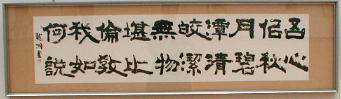 吾心
佀秋
月碧
潭清
皎潔
無物
堪比
倫教
我如
何說